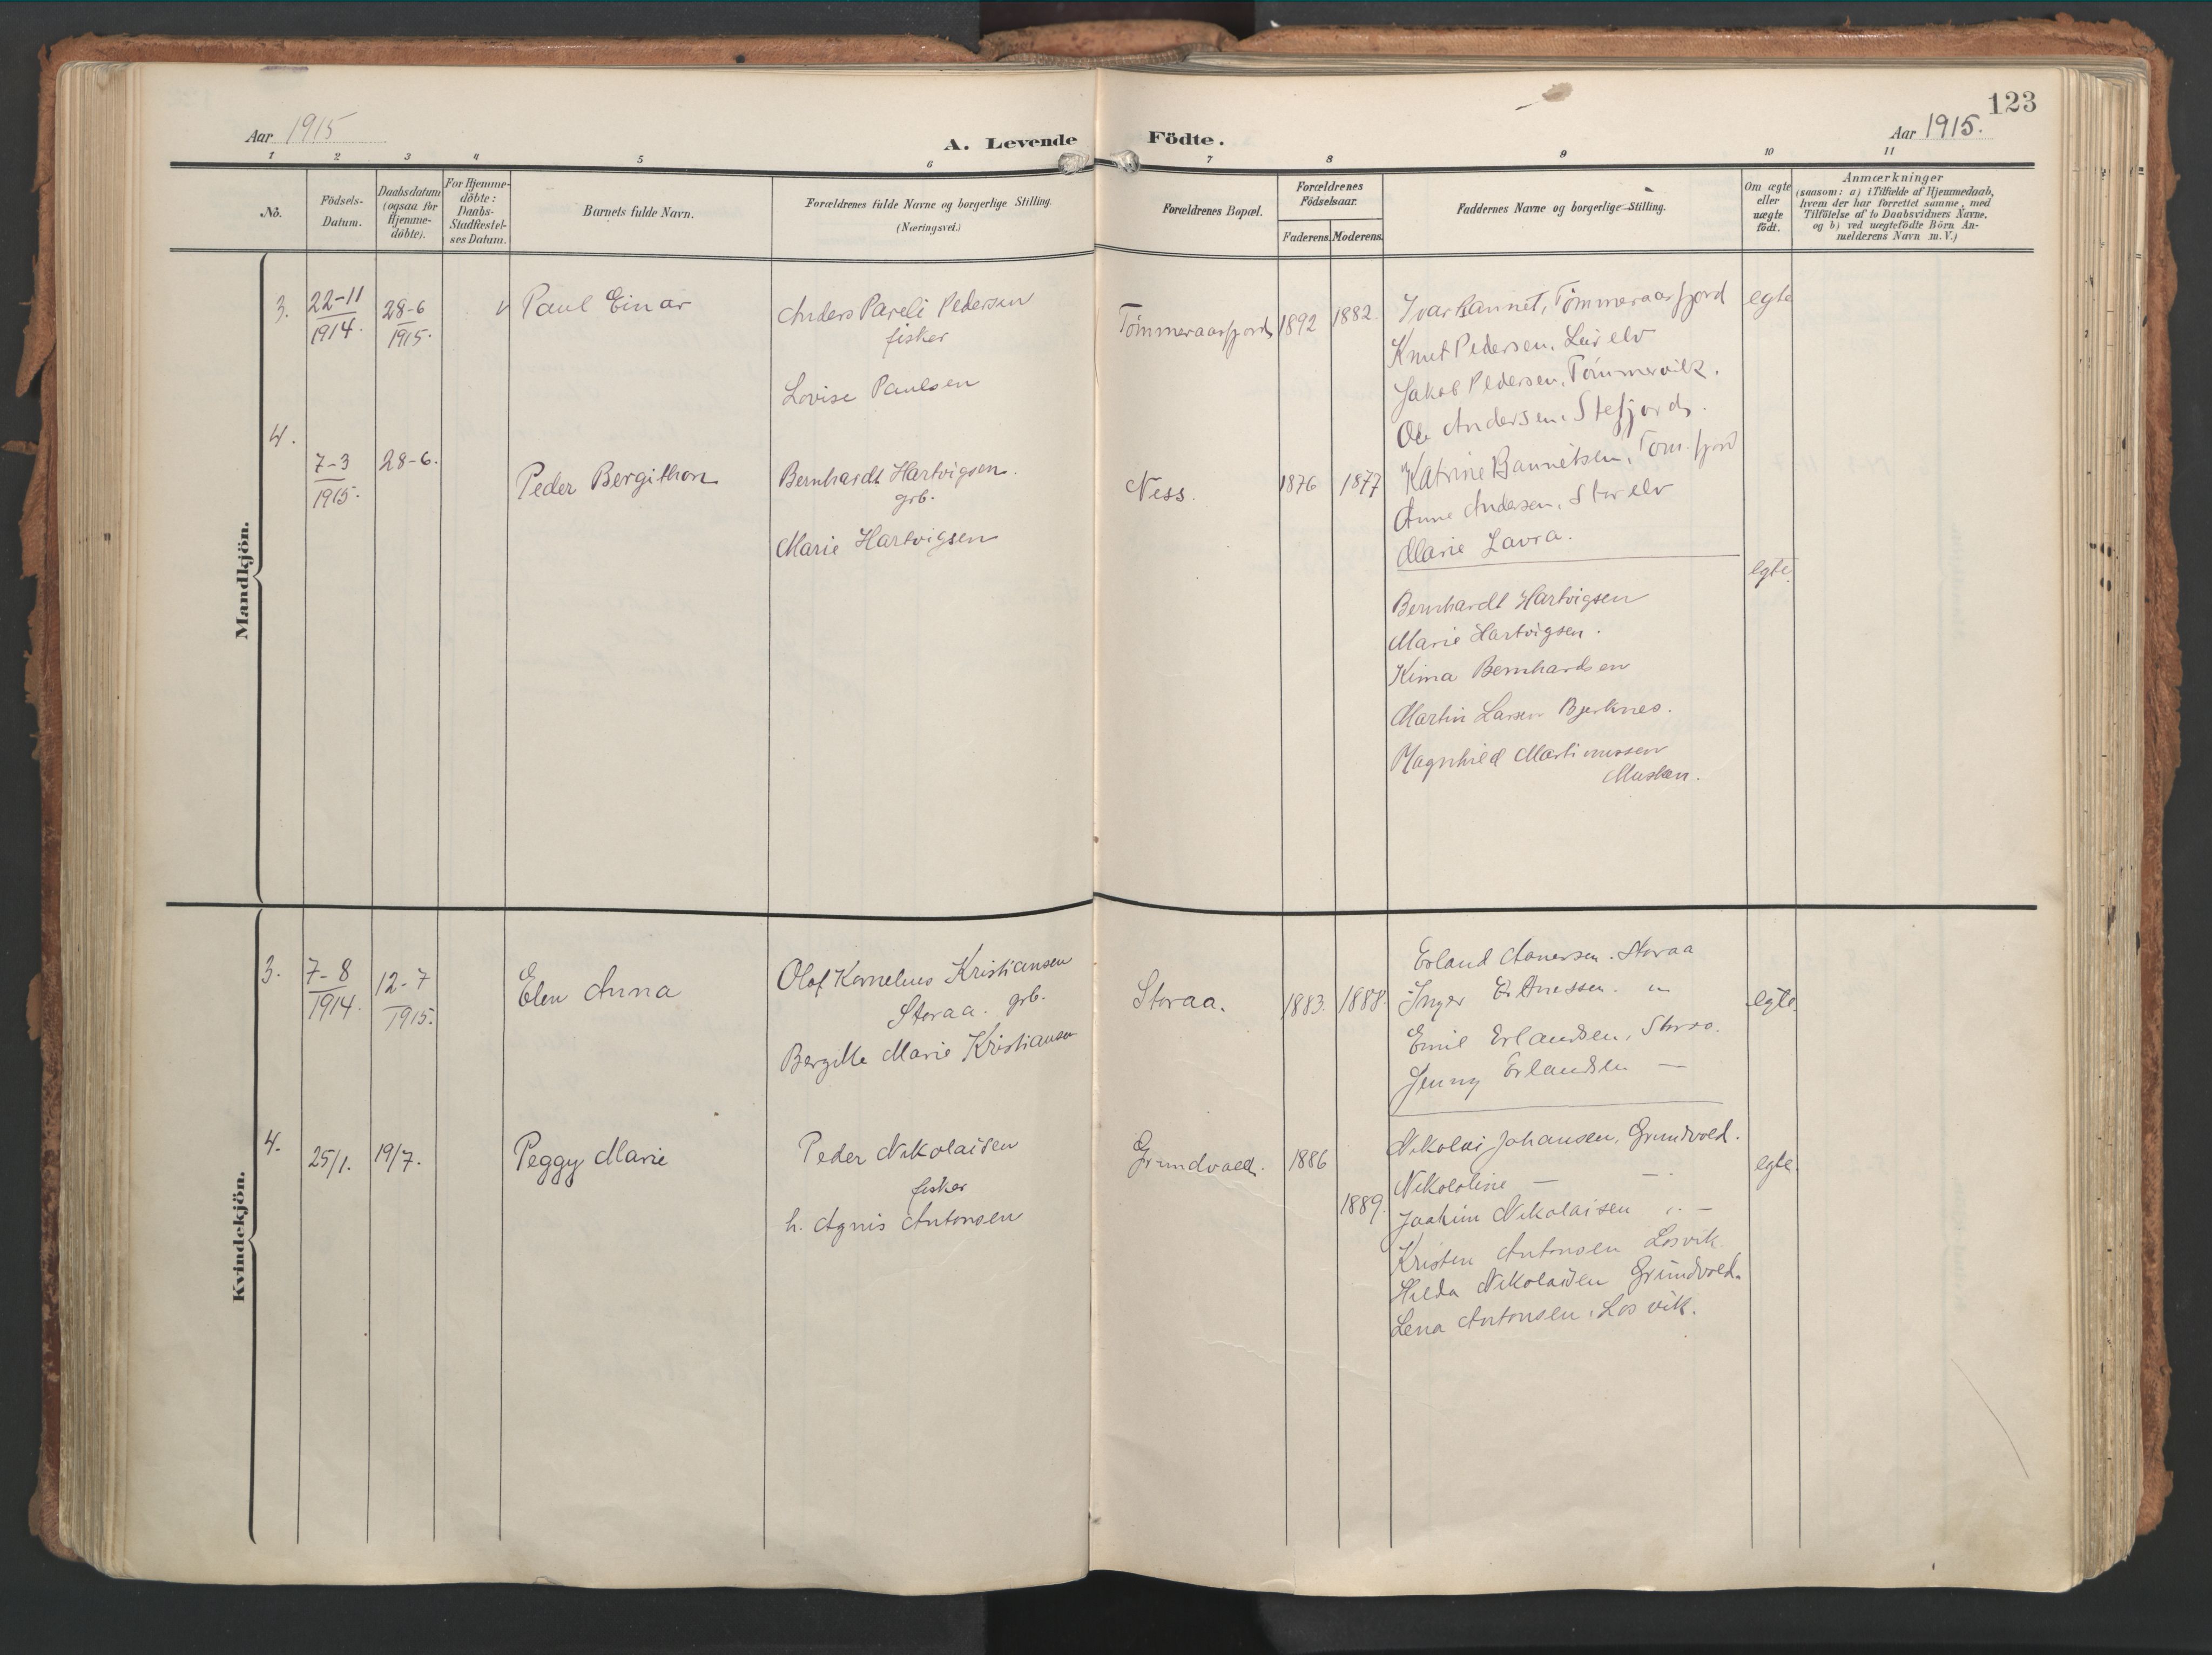 123
Aar 1915
A. Levende Födte.
Aar 1915.
1 2 3 4 5 6 7 8 9 10 11
No.
Födsels-
Datum.
Daabsdatum
(ogsaa for
Hjemme-
döbte).
For Hjemme-
döbte:
Daabs-
Stadfæstel-
ses Datum.
Barnets fulde Navn.
Forældrenes fulde Navne og borgerlige Stilling.
(Næringsvei.)
Forældrenes Bopæl.
Forældrenes
Födselsaar.
Faderens. Moderens.
Faddernes Navne og borgerlige Stilling.
Om ægte
eller
uægte
födt.
Anmærkninger
(saasom: a) i Tilfælde af Hjemmedaab,
hvem der har forrettet samme, med
Tilföielse af to Daabsvidners Navne,
og b) ved uægtefödte Börn An-
melderens Navn m. V.)
Mandkjön.
3.
22-11
1914.
28-6
1915.
Paul Einar
Anders Pareli Pedersen
fisker
Lovise Paulsen
Tömmeraasfjord
1892
1882.
Ivar Bannet, Tömmeraasfjord
Knut Pedersen, Leirelv
Jakob Pedersen, Tömmervik.
Ole Andersen, Stefjord.
Katrine Bannetsen, Töm.fjord
Anne Andersen, Storelv
Marie Laura.
egte
4.
7-3
1915.
28-6.
Peder Bergithon
Bernhardt Hartvigsen.
grb.
Marie Hartvigsen
Ness.
1876
1877
Bernhardt Hartvigsen
Marie Hartvigsen.
Kima Bernhardsen
Martin Larsen Bjerknes.
Magnhild Martinussen
Musken.
egte.
Kvindekjön.
3.
7-8
1914.
12-7
1915.
Elen Anna
Olaf Kornelius Kristiansen
Storaa. grb.
Bergitte Marie Kristiansen
Storaa.
1883.
1888.
Erland Storaa
Inger
Emil Erlandsen,
Jenny Erlandsen —
egte.
4.
25/1.
19/7.
Peggy Marie
Peder Nikolaisen
fisker
h. Agnis Antonsen
Grundvold.
1886
1889.
Nikolai Johansen, Grundvold.
Nikololine — —
Joakim Nikolaisen —
Kristen Antonsen Losvik
Hilda Nikolaisen Grundvold.
Lena Antonsen, Losvik.
egte.